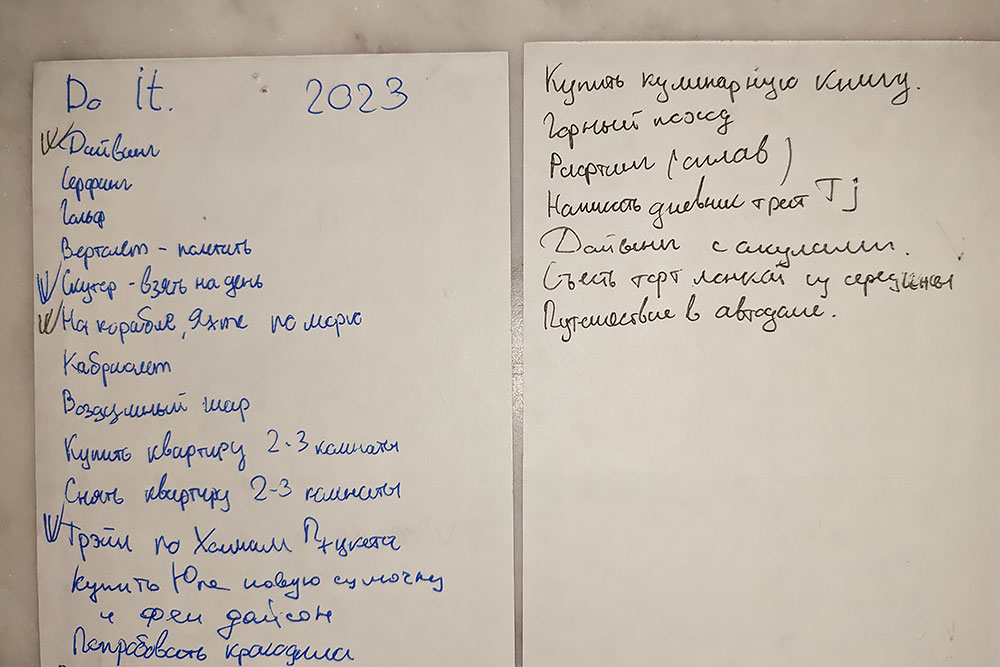 Do it. 2023
Дайвинг
Серфинг
Гольф
Верталет - полетать
Скутер - взять на день
На корабле, Яхте по морю
Кабриолет
Воздушный шар
Купить квартиру 2-3 комнаты
Снять квартиру 2-3 комнаты
Трэйл по Холмам Пхукета
Купить Юле новую сумочку
и фен дайсон
Попробовать крокодила
Купить кулинарную книгу.
Горный поход
Рафтинг (сплав)
Написать дневник трет Tj
Дайвинг с акулами.
Съесть торт ложкой из середины
Путешествие в автодоме.